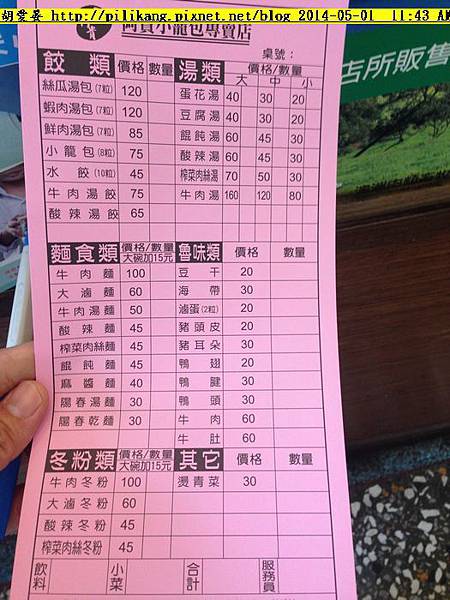 胡愛善 http://pilikang.pixnet.net/blog 2014-05-01 11:43 AM
阿貴小龍包專賣店
桌號：
店所販售
餃類 價格 數量 湯類 價格/數量
大 中 小
絲瓜湯包(7粒) 120 蛋花湯 40 30 20
蝦肉湯包(7粒) 120 豆腐湯 40 30 20
鮮肉湯包(7粒) 85 餛飩湯 60 45 30
小龍包(8粒) 75 酸辣湯 60 45 30
水餃(10粒) 45 榨菜肉絲湯 70 50 30
牛肉湯餃 75 牛肉湯 160 120 80
酸辣湯餃 65
麵食類 價格/數量 大碗加15元 魯味類 價格 數量
牛肉麵 100 豆干 20
大滷麵 60 海帶 30
牛肉湯麵 50 滷蛋(2粒) 20
酸辣麵 45 豬頭皮 20
榨菜肉絲麵 45 豬耳朵 30
餛飩麵 45 鴨翅 20
麻醬麵 40 鴨腱 30
陽春湯麵 30 鴨頭 30
陽春乾麵 30 牛肉 60
牛肚 60
冬粉類 價格/數量 大碗加15元 其它 價格 數量
牛肉冬粉 100 燙青菜 30
大滷冬粉 60
酸辣冬粉 45
榨菜肉絲冬粉 45
飲料 小菜 合計 服務員